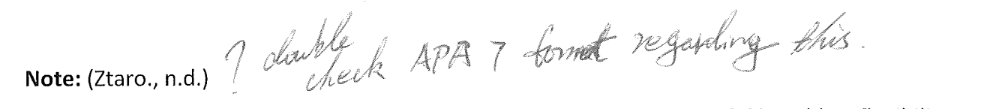 Note: (Ztaro., n.d.) ? double check APA 7 format regarding this.